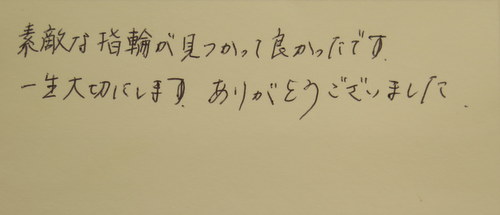 素敵な指輪が見つかって良かったです.
一生大切にします. ありがとうございました.